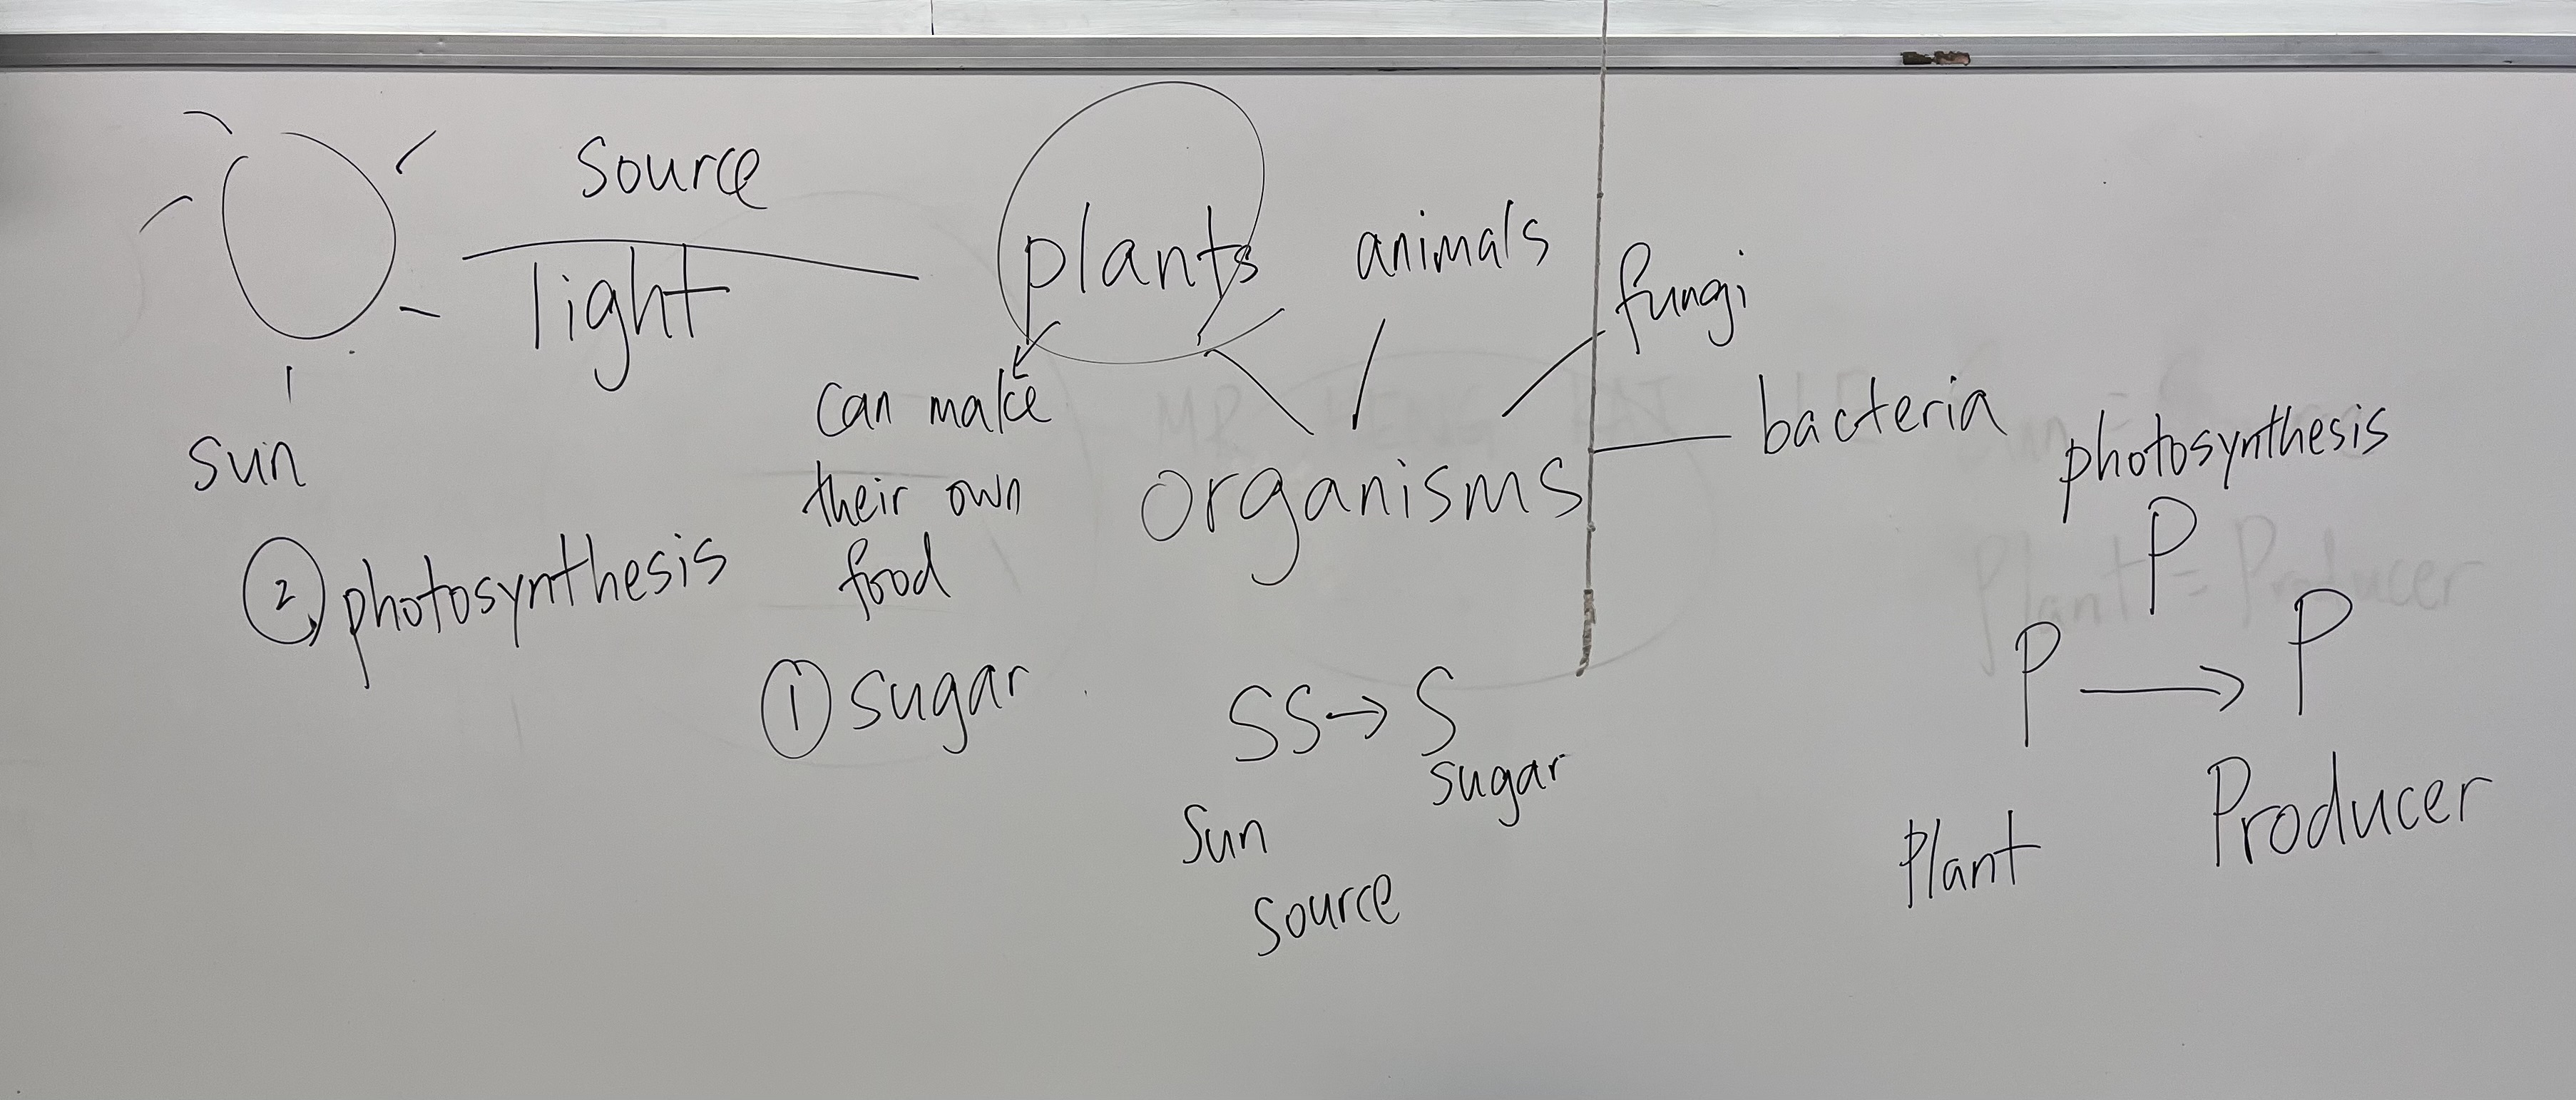 source
light
sun
plants
animals
fungi
bacteria
organisms
can make
their own
food
① sugar
② photosynthesis
SS → S
sugar
Sun
Source
photosynthesis
P
P → P
Plant
Producer
Plant = Producer